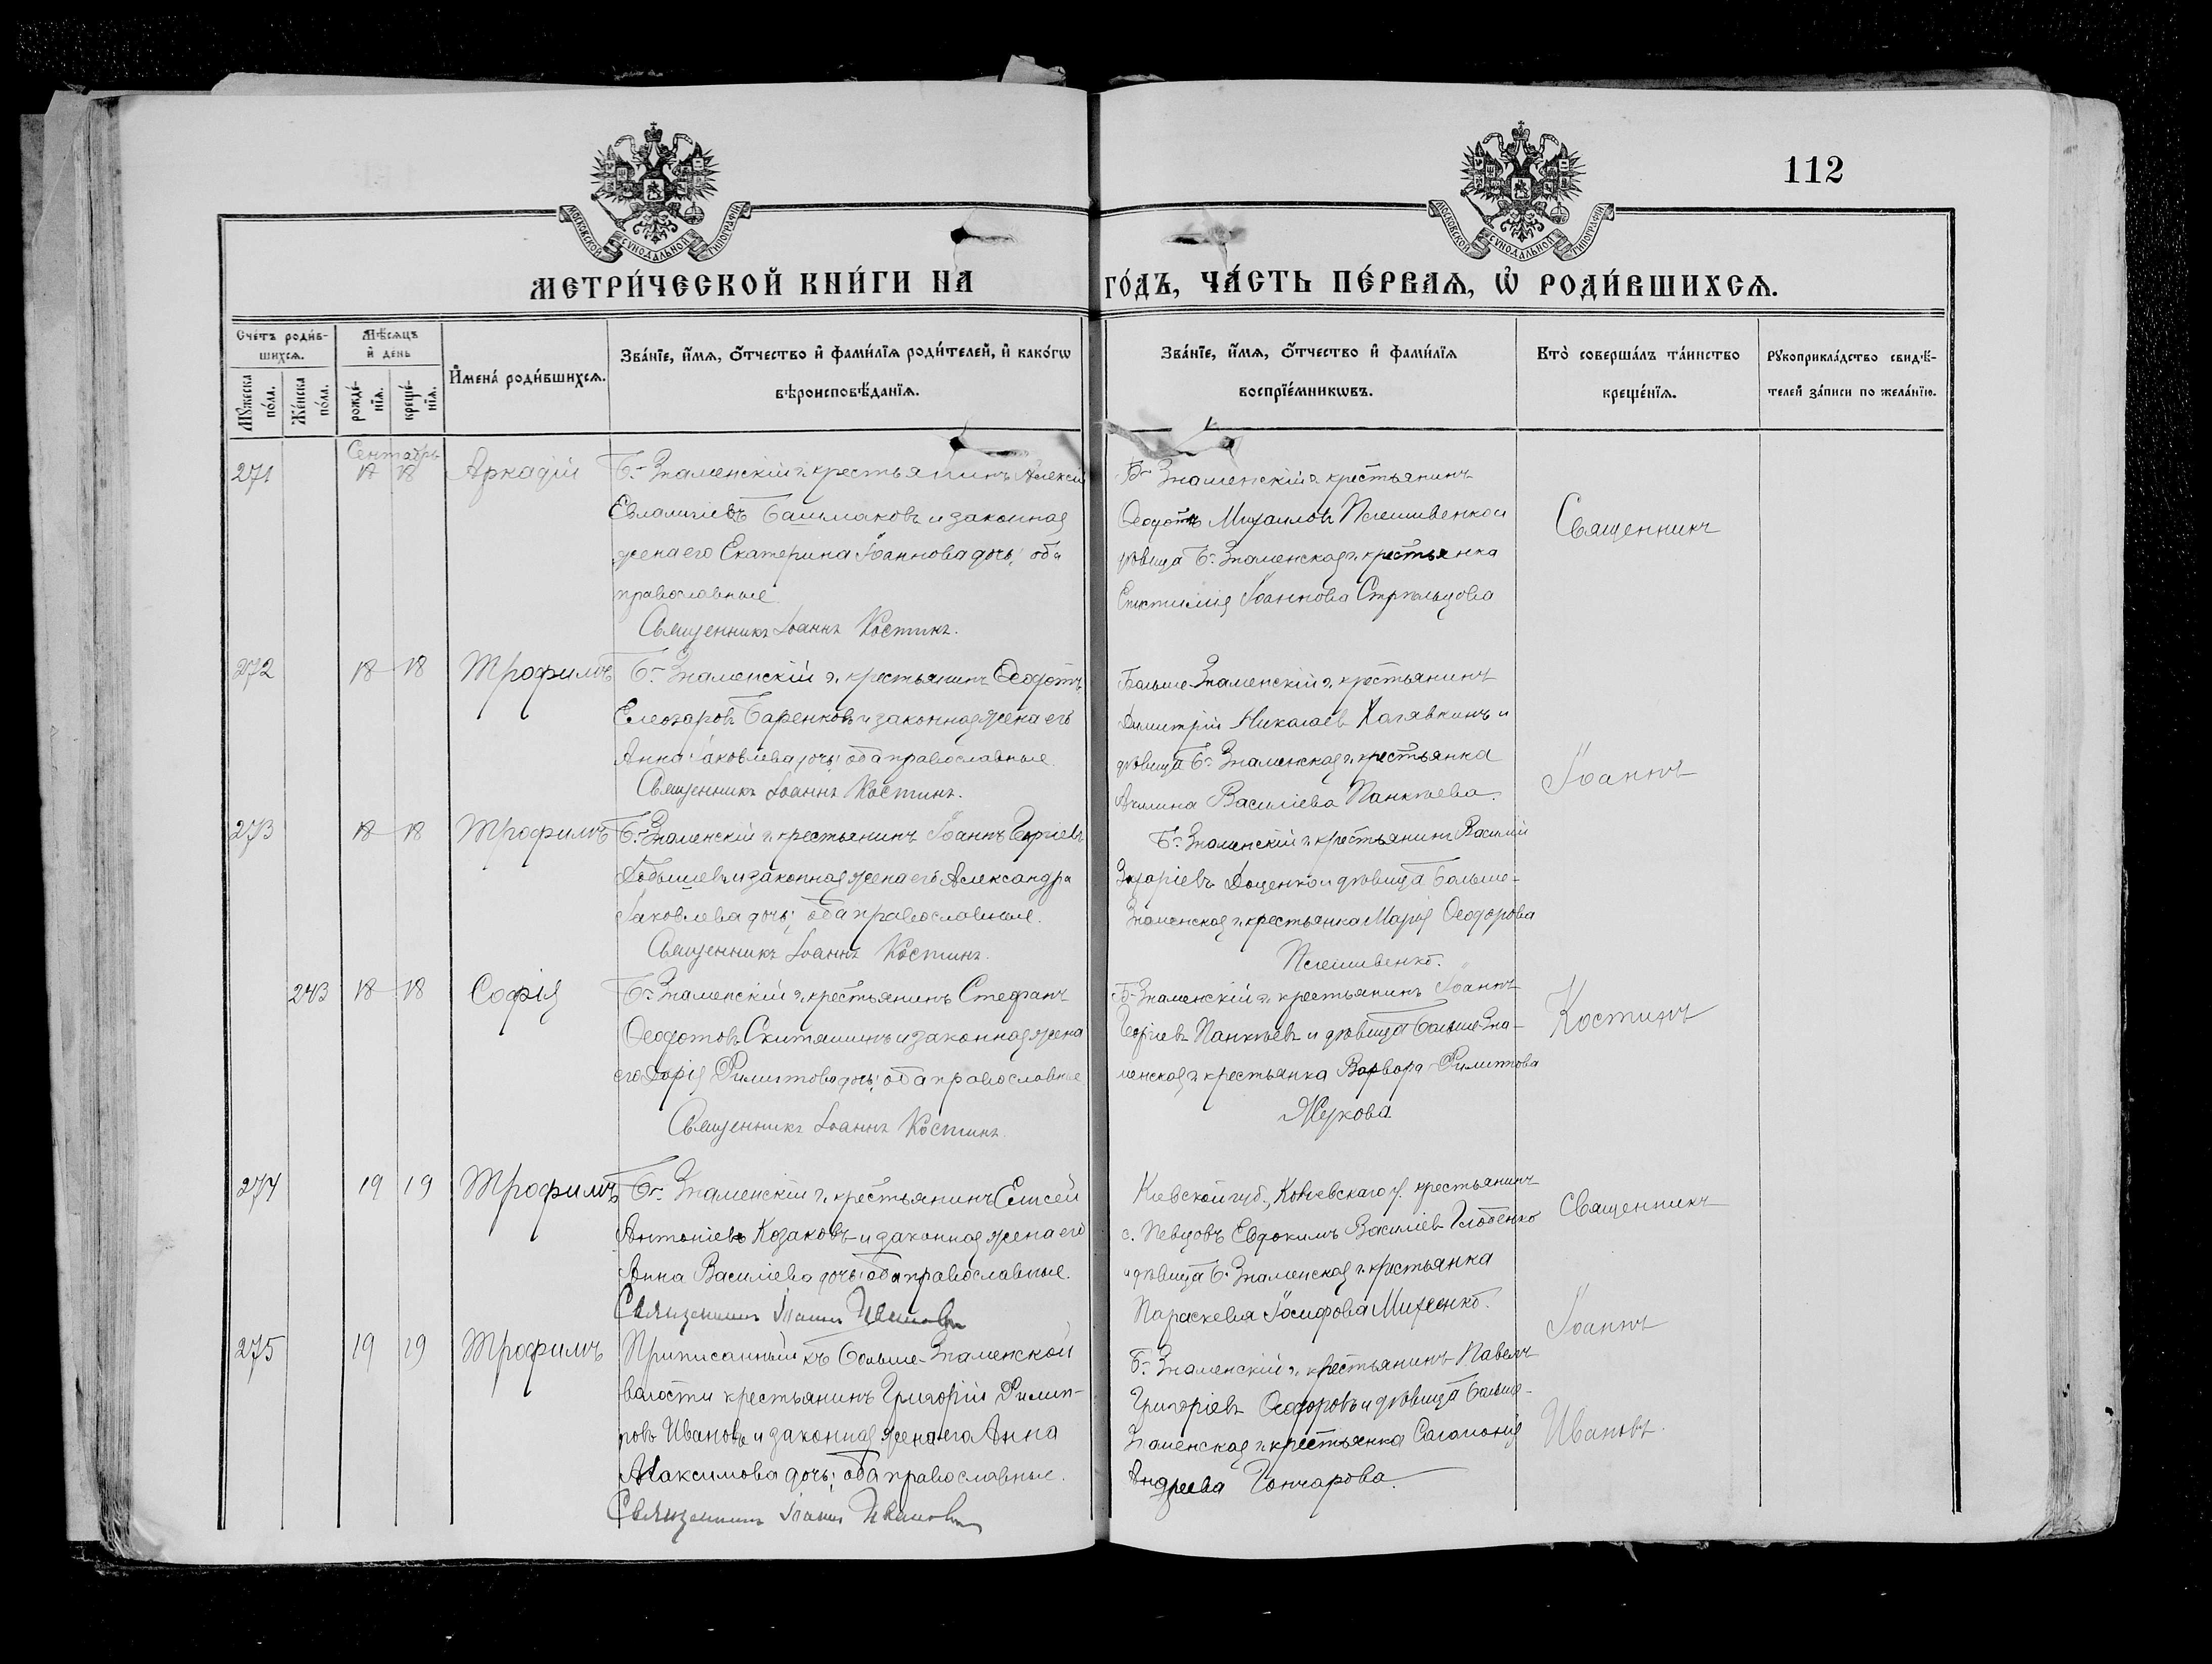 112
МОСКОВСКОЙ СУНОДАЛЬНОЙ ТИПОГРАФІИ
МОСКОВСКОЙ СУНОДАЛЬНОЙ ТИПОГРАФІИ
МЕТРИ́ЧЕСКОЙ КНИ́ГИ НА
ГО́ДЪ, ЧА́СТЬ ПЕ́РВАѦ, Ѽ РОДИ́ВШИХСѦ.
Сче́тъ роди́в-
шихсѧ.
Мꙋ́жеска по́ла.
Же́нска по́ла.
Мѣ́сѧцъ
и҆ де́нь
рожде́-
нїѧ.
креще́-
нїѧ.
И҆мена̀ роди́вшихсѧ.
Зва́нїе, и҆́мѧ, ѻ҆́тчество и҆ фами́лїѧ роди́телей, и҆ како́гѡ
вѣроисповѣ́данїѧ.
Зва́нїе, и҆́мѧ, ѻ҆́тчество и҆ фами́лїѧ
воспрїе́мникѡвъ.
Кто̀ соверша́лъ та́инство
креще́нїѧ.
Рꙋкоприкла́дство свидѣ́-
телей за́писи по жела́нїю.
Сентябрь
271 18 18 Аркадій
Б.-Знаменскій г. крестьянинъ Алексій
Евлампіевъ Башмаковъ и законная
жена его Екатерина Іоаннова дочь; оба
православные.
Священникъ Іоаннъ Костинъ.
Б.-Знаменскій г. крестьянинъ
Ѳеодотъ Михаиловъ Плешивенко и
дѣвица Б.-Знаменская г. крестьянка
Епистимія Іоаннова Стрѣльцова
Священникъ
272 18 18 Трофимъ
Б.-Знаменскій г. крестьянинъ Ѳеодотъ
Елеозаровъ Баренковъ и законная жена его
Анна Іаковлева дочь; оба православные.
Священникъ Іоаннъ Костинъ.
Больше-Знаменскій г. крестьянинъ
Димитрій Николаевъ Халявкинъ и
дѣвица Б.-Знаменская г. крестьянка
Акилина Василіева Панкѣева.
Іоаннъ
273 18 18 Трофимъ
Б.-Знаменскій г. крестьянинъ Іоаннъ Георгіевъ
Лобышевъ и законная жена его Александра
Іаковлева дочь; оба православные.
Священникъ Іоаннъ Костинъ.
Б.-Знаменскій г. крестьянинъ Василій
Захаріевъ Доценко и дѣвица Больше-
Знаменская г. крестьянка Марія Ѳеодорова
Плешивенко.
243 18 18 Софія
Б.-Знаменскій г. крестьянинъ Стефанъ
Ѳеодотовъ Скитяшинъ и законная жена
его Дарія Филиппова дочь; оба православные
Священникъ Іоаннъ Костинъ.
Б.-Знаменскій г. крестьянинъ Іоаннъ
Георгіевъ Панкѣевъ и дѣвица Больше-Зна-
менская г. крестьянка Варвара Филиппова
Жукова
Костинъ
274 19 19 Трофимъ
Б.-Знаменскій г. крестьянинъ Елисей
Антоніевъ Козаковъ и законная жена его
Анна Василіева дочь; оба православные.
Священникъ Іоаннъ Ивановъ
Кіевской губ., крестьянинъ
с. Певцовъ Евдокимъ Василіевъ Глобенко
и дѣвица Б.-Знаменская г. крестьянка
Параскевія Іосифова Михеенко.
Священникъ
275 19 19 Трофимъ
Приписанный къ Больше-Знаменской
волости крестьянинъ Григорій Филип-
повъ Ивановъ и законная жена его Анна
Максимова дочь; оба православные.
Священникъ Іоаннъ Ивановъ
Б.-Знаменскій г. крестьянинъ Павелъ
Григоріевъ Ѳеодоровъ и дѣвица Больше-
Знаменская г. крестьянка Саломонія
Андреева Гончарова.
Іоаннъ
Ивановъ.